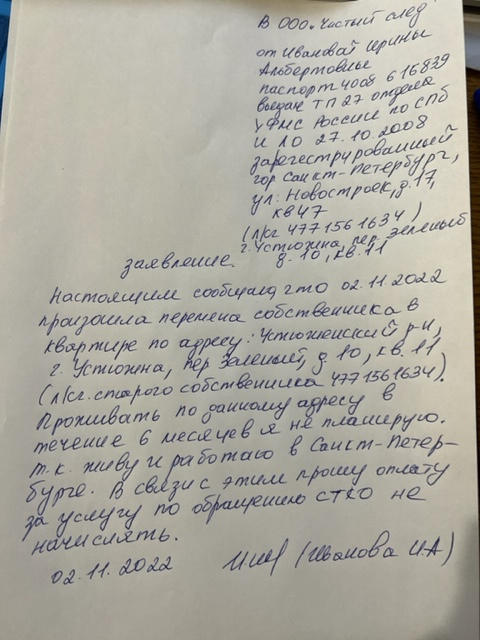 В ООО "Чистый след"
от Ивановой Ирины
Альбертовны
паспорт 4008 616839
выдан ТП 27 отдела
УФМС России по СПб
и ЛО 27.10.2008
зарегестрированный
гор Санкт-Петербург,
ул: Новостроек, д.17,
кв 47
(л/сг 4771561634)
г. Устюжна, пер Зеленый
д. 10, кв. 11
заявление.
Настоящим сообщаю, что 02.11.2022
произошла перемена собственника в
квартире по адресу: Устюженский р-н,
г. Устюжна, пер Зеленый, д. 10, кв. 11
(л/сг. старого собственника 4771561634).
Проживать по данному адресу в
течение 6 месяцев я не планирую.
т.к. живу и работаю в Санкт-Петер-
бурге. В связи с этим прошу оплату
за услугу по обращению с ТКО не
начислять.
02.11.2022 (Иванова И.А)